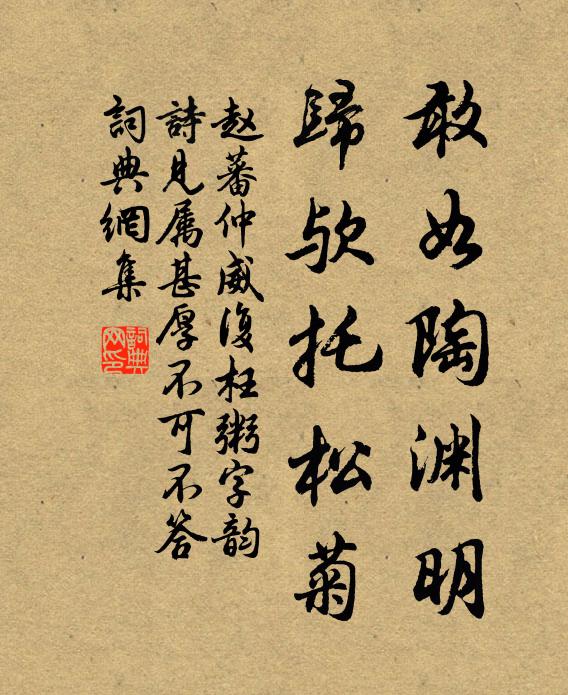 敢如陶渊明
歸欤托松菊
赵蕃仲威復枉粥字韵
詩見属甚厚不可不答
詞典網集
詞典网印